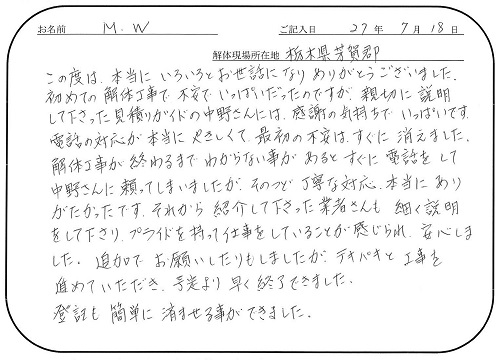 お名前 M.W ご記入日 27年 7月 18日
解体現場所在地 栃木県芳賀郡
この度は、本当に いろいろと お世話に なり ありがとうございました。
初めての 解体工事で 不安で いっぱいだったのですが、親切に 説明
して下さった 見積りガイドの 中野さんには、感謝の気持ちで いっぱいです。
電話の対応が 本当に やさしくて、最初の 不安は、すぐに 消えました。
解体工事が 終わるまで わからない事が あると すぐに 電話を して
中野さんに 頼ってしまいましたが、そのつど 丁寧な対応、本当に あり
がたかったです。それから 紹介して下さった 業者さんも 細く説明
をして下さり、プライドを持って仕事をしていることが 感じられ、安心しま
した。追加で お願いしたりもしましたが、テキパキと 工事を
進めていただき、予定より 早く 終了できました。
登記も 簡単に 済ませる事ができました。